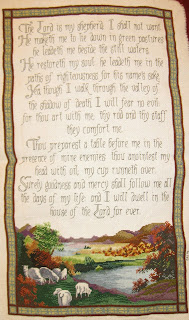 The Lord is my shepherd I shall not want
He maketh me to lie down in green pastures
he leadeth me beside the still waters
He restoreth my soul he leadeth me in the
paths of righteousness for his names sake
Yea though I walk through the valley of
the shadow of death I will fear no evil
for thou art with me thy rod and thy staff
they comfort me
Thou preparest a table before me in the
presence of mine enemies thou anointest my
head with oil, my cup runneth over.
Surely goodness and mercy shall follow me all
the days of my life and I will dwell in the
house of the Lord for ever.